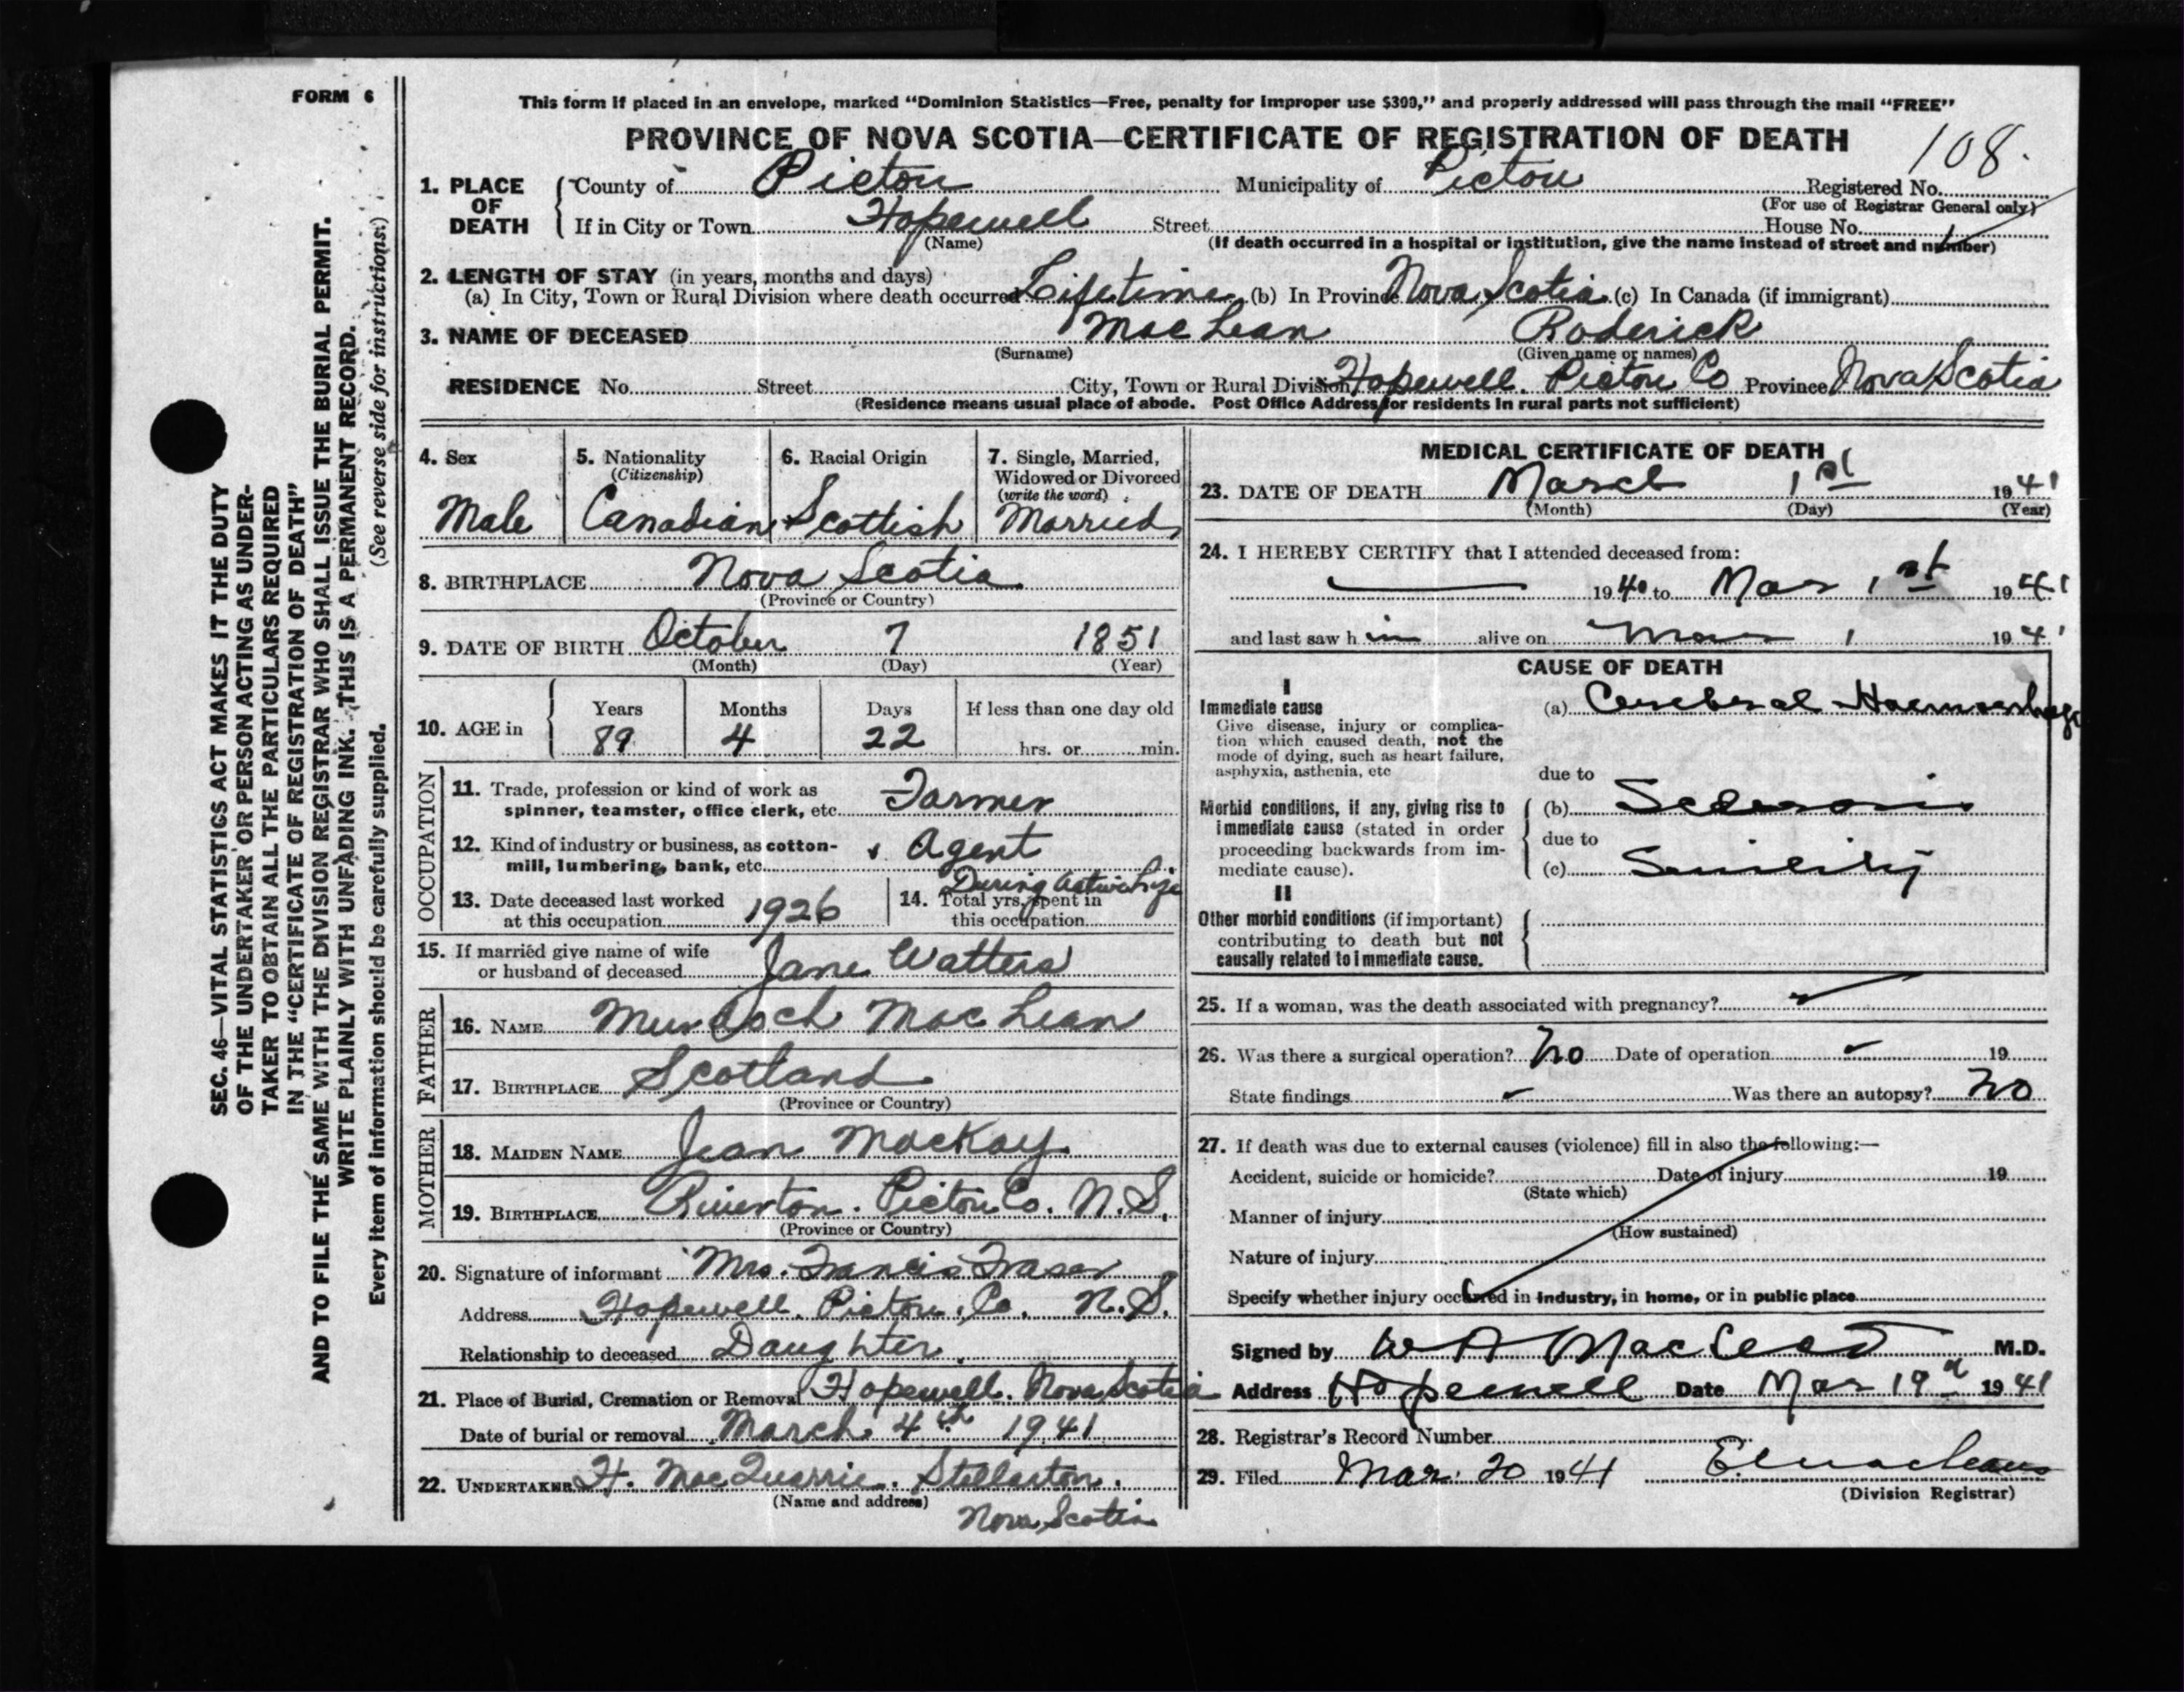 FORM 6
This form if placed in an envelope, marked “Dominion Statistics—Free, penalty for improper use $300,” and properly addressed will pass through the mail “FREE”
PROVINCE OF NOVA SCOTIA—CERTIFICATE OF REGISTRATION OF DEATH
108.
1. PLACE OF DEATH
County of Pictou Municipality of Pictou Registered No.
(For use of Registrar General only)
If in City or Town Hopewell Street House No.
(Name) (If death occurred in a hospital or institution, give the name instead of street and number)
2. LENGTH OF STAY (in years, months and days)
(a) In City, Town or Rural Division where death occurred Lifetime (b) In Province Nova Scotia (c) In Canada (if immigrant)
3. NAME OF DECEASED MacLean Roderick
(Surname) (Given name or names)
RESIDENCE No. Street City, Town or Rural Division Hopewell. Pictou Co Province Nova Scotia
(Residence means usual place of abode. Post Office Address for residents in rural parts not sufficient)
4. Sex
Male
5. Nationality
(Citizenship)
Canadian
6. Racial Origin
Scottish
7. Single, Married,
Widowed or Divorced
(write the word)
Married
8. BIRTHPLACE Nova Scotia
(Province or Country)
9. DATE OF BIRTH October 7 1851
(Month) (Day) (Year)
10. AGE in
Years Months Days If less than one day old
89 4 22 hrs. or min.
OCCUPATION
11. Trade, profession or kind of work as
spinner, teamster, office clerk, etc. Farmer
12. Kind of industry or business, as cotton-
mill, lumbering, bank, etc. & Agent
13. Date deceased last worked
at this occupation 1926
14. Total yrs. spent in
this occupation During Active Life
15. If married give name of wife
or husband of deceased Jane Watters
FATHER
16. NAME Murdoch MacLean
17. BIRTHPLACE Scotland
(Province or Country)
MOTHER
18. MAIDEN NAME Jean MacKay
19. BIRTHPLACE Riverton. Pictou Co. N.S.
(Province or Country)
20. Signature of informant Mrs. Francis Fraser
Address Hopewell. Pictou. Co. N.S.
Relationship to deceased Daughter.
21. Place of Burial, Cremation or Removal Hopewell. Nova Scotia
Date of burial or removal March 4th 1941
22. UNDERTAKER H. MacQuarrie. Stellarton.
(Name and address)
Nova Scotia
MEDICAL CERTIFICATE OF DEATH
23. DATE OF DEATH March 1st 1941
(Month) (Day) (Year)
24. I HEREBY CERTIFY that I attended deceased from:
1940 to Mar 1st 1941
and last saw h im alive on Mar 1 1941
CAUSE OF DEATH
I
Immediate cause
Give disease, injury or complica-
tion which caused death, not the
mode of dying, such as heart failure,
asphyxia, asthenia, etc
(a) Cerebral Haemorrhage
due to
Morbid conditions, if any, giving rise to
immediate cause (stated in order
proceeding backwards from im-
mediate cause).
(b) Sclerosis
due to
(c) Senility
II
Other morbid conditions (if important)
contributing to death but not
causally related to immediate cause.
25. If a woman, was the death associated with pregnancy?
26. Was there a surgical operation? No Date of operation 19
State findings Was there an autopsy? No
27. If death was due to external causes (violence) fill in also the following:—
Accident, suicide or homicide? Date of injury 19
(State which)
Manner of injury
(How sustained)
Nature of injury
Specify whether injury occurred in industry, in home, or in public place
Signed by W A MacLeod M.D.
Address Hopewell Date Mar 19d 1941
28. Registrar's Record Number
29. Filed Mar. 20 1941
(Division Registrar)
SEC. 46—VITAL STATISTICS ACT MAKES IT THE DUTY
OF THE UNDERTAKER OR PERSON ACTING AS UNDER-
TAKER TO OBTAIN ALL THE PARTICULARS REQUIRED
IN THE “CERTIFICATE OF REGISTRATION OF DEATH”
AND TO FILE THE SAME WITH THE DIVISION REGISTRAR WHO SHALL ISSUE THE BURIAL PERMIT.
WRITE PLAINLY WITH UNFADING INK. THIS IS A PERMANENT RECORD.
Every item of information should be carefully supplied. (See reverse side for instructions.)